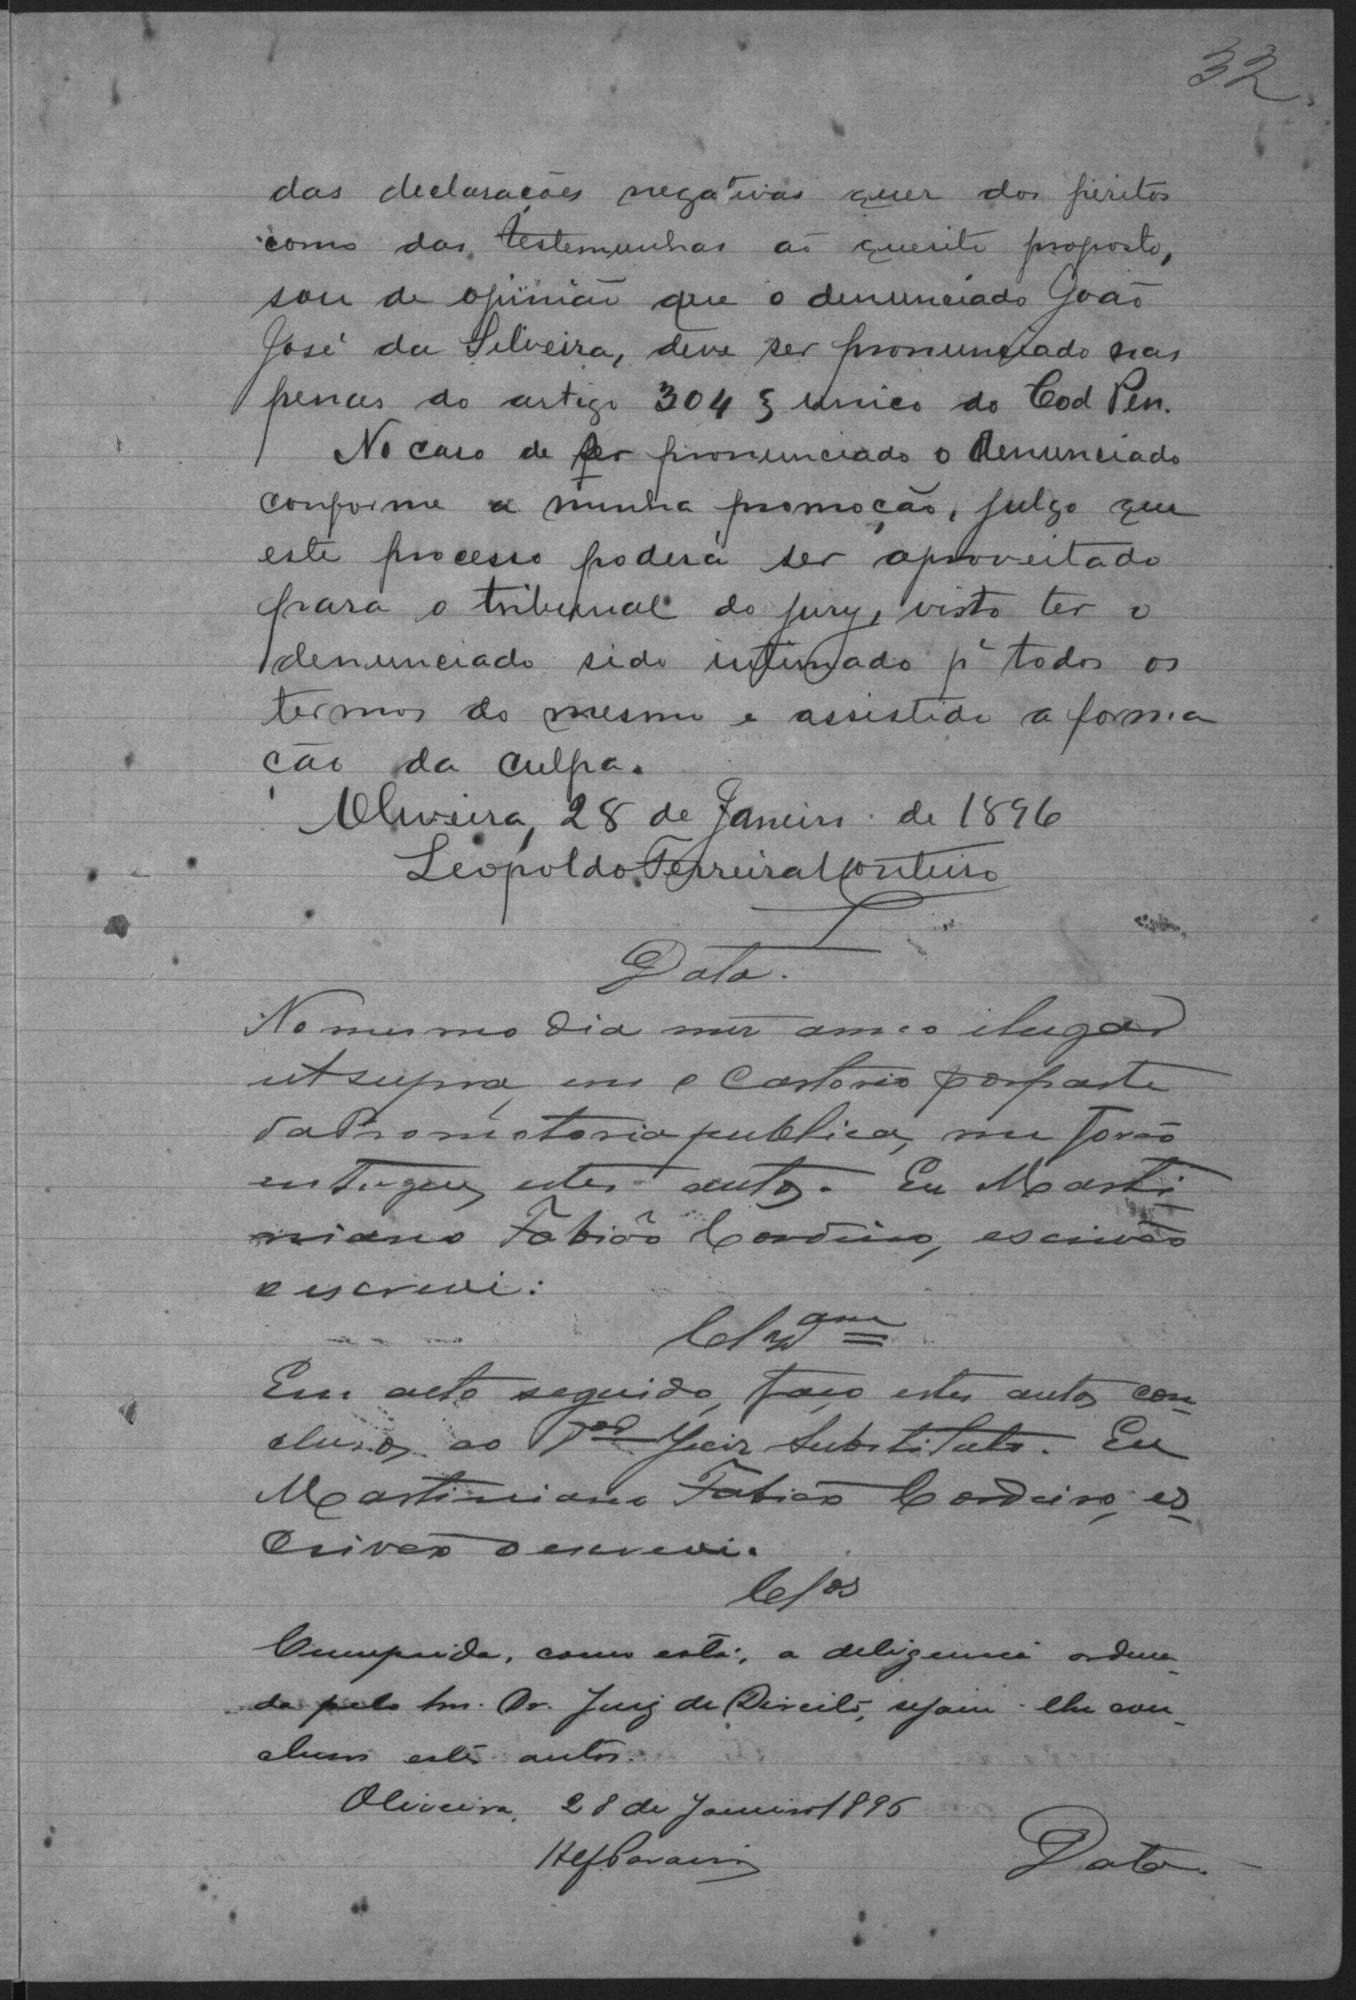 32
das declarações negativas quer dos peritos
como das testemunhas aõ quesito proposto,
sou de opinião que o denunciado João
José da Silveira, deve ser pronunciado nas
penas do artigo 304 § unico do Cod Pen.
No caso de ser pronunciado o denunciado
conforme a minha promoção, julgo que
este processo poderá ser aproveitado
para o tribunal do jury, visto ter o
denunciado sido intimado pª todos os
termos do mesmo e assistido a forma
ção da culpa.
Oliveira, 28 de Janeiro de 1896
Leopoldo Ferreira Monteiro
Data.
No mesmo dia mez anno e lugar
ut supra, em o Cartorio por parte
da Promotoria publica, me forão
entregues estes autos. Eu Marti
niano Fabião Cordeiro, escrivão
o escrevi.
Clzam
Em acto seguido, faço estes autos con-
clusos ao Juiz Substituto. Eu
Martiniano Fabião Cordeiro, es-
crivão o escrevi.
Clos
Cumprida, como está, a deligencia ordena-
da pelo Snr. Dr. Juiz de Direito, sejam-lhe con-
clusos estes autos.
Oliveira, 28 de Janeiro 1896
Data.